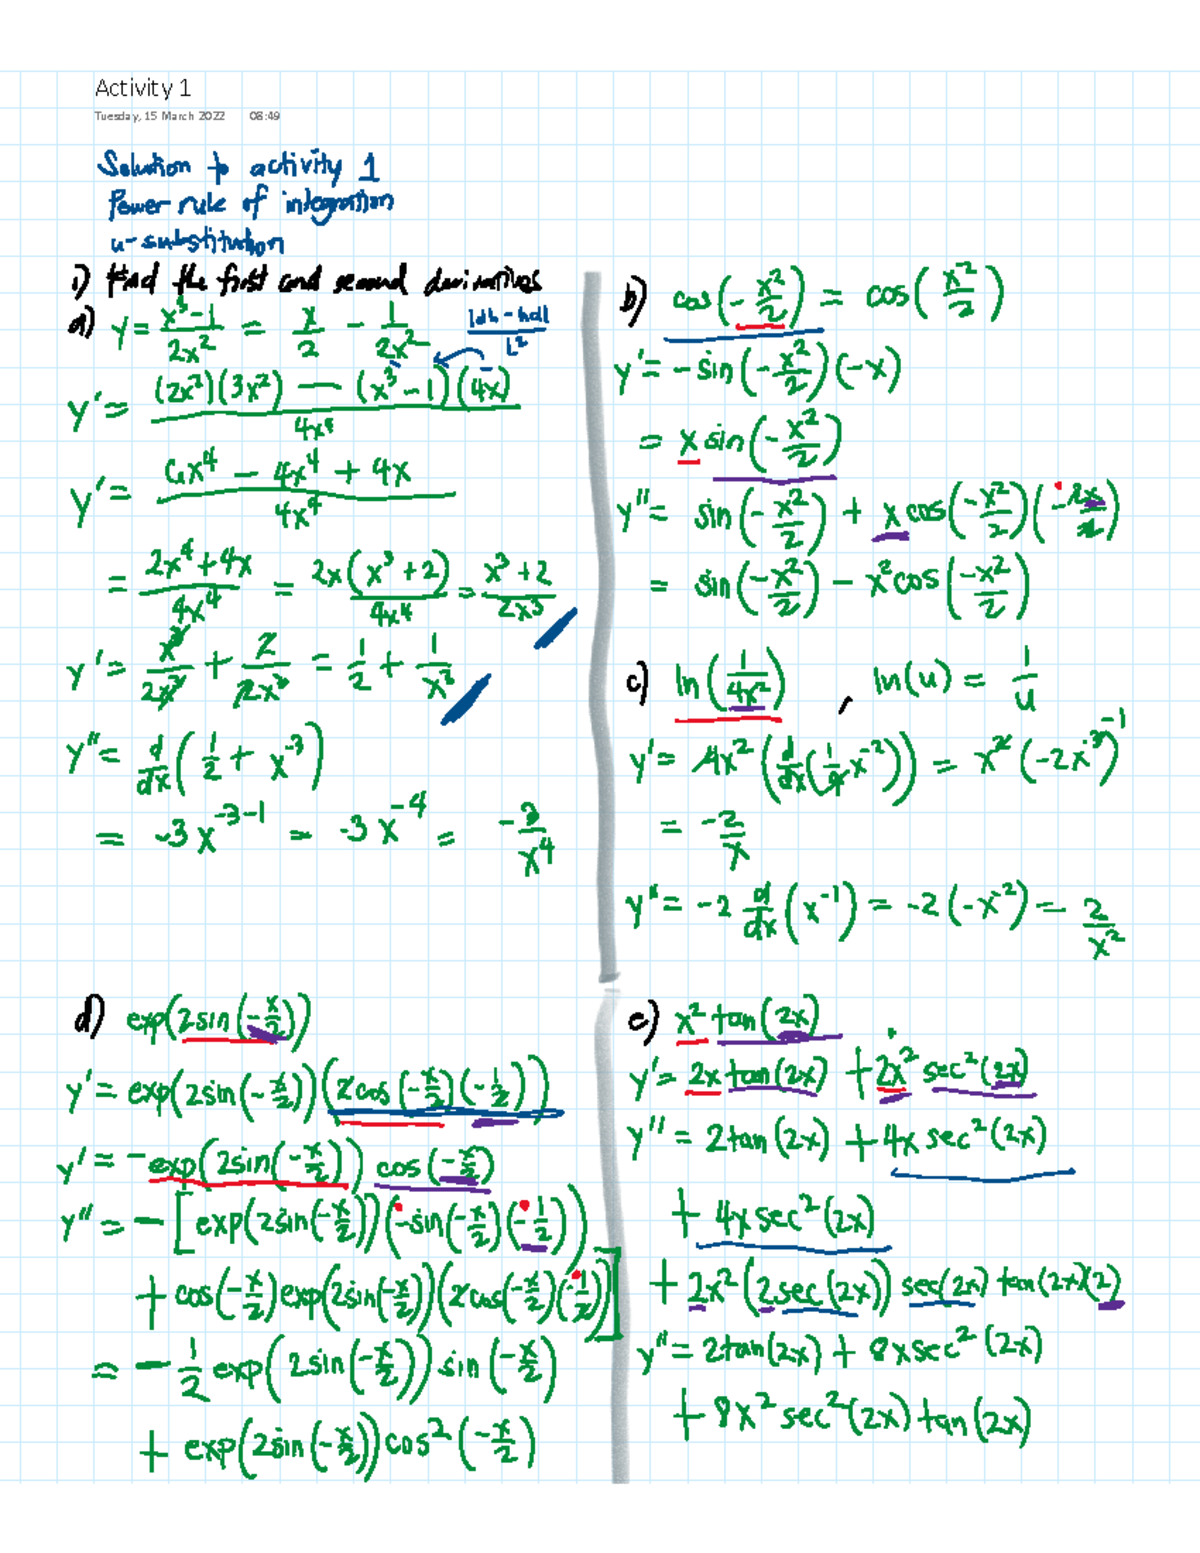 Activity 1
Tuesday, 15 March 2022 08:49
Solution to activity 1
Power rule of integration
u-substitution
1) Find the first and second derivatives
a) y = (x³-1)/(2x²) = x/2 - 1/(2x²)
y' = ((2x²)(3x²) — (x³-1)(4x))/(4x⁴)
y' = (6x⁴ - 4x⁴ + 4x)/(4x⁴)
= (2x⁴+4x)/(4x⁴) = 2x(x³+2)/(4x⁴) = (x³+2)/(2x³)
y' = x³/(2x³) + 2/(2x³) = 1/2 + 1/x³
y'' = d/dx(1/2 + x⁻³)
= -3x⁻³⁻¹ = -3x⁻⁴ = -3/x⁴
b) cos(-x²/2) = cos(x²/2)
y' = -sin(-x²/2)(-x)
= x sin(-x²/2)
y'' = sin(-x²/2) + x cos(-x²/2)(-2x/2)
= sin(-x²/2) - x²cos(-x²/2)
c) ln(1/(4x²)) , ln(u) = 1/u
y' = 4x²(d/dx(1/4 x⁻²)) = x²(-2x⁻³)⁻¹
= -2/x
y'' = -2 d/dx(x⁻¹) = -2(-x⁻²) = 2/x²
d) exp(2sin(-x/2))
y' = exp(2sin(-x/2))(2cos(-x/2)(-1/2))
y' = -exp(2sin(-x/2)) cos(-x/2)
y'' = -[exp(2sin(-x/2))(-sin(-x/2)(-1/2))
+ cos(-x/2)exp(2sin(-x/2))(2cos(-x/2)(-1/2))]
= -1/2 exp(2sin(-x/2)) sin(-x/2)
+ exp(2sin(-x/2))cos²(-x/2)
e) x² tan(2x)
y' = 2x tan(2x) + 2x² sec²(2x)
y'' = 2tan(2x) + 4x sec²(2x)
+ 4x sec²(2x)
+ 2x²(2sec(2x)) sec(2x) tan(2x)(2)
y'' = 2tan(2x) + 8x sec²(2x)
+ 8x² sec²(2x) tan(2x)